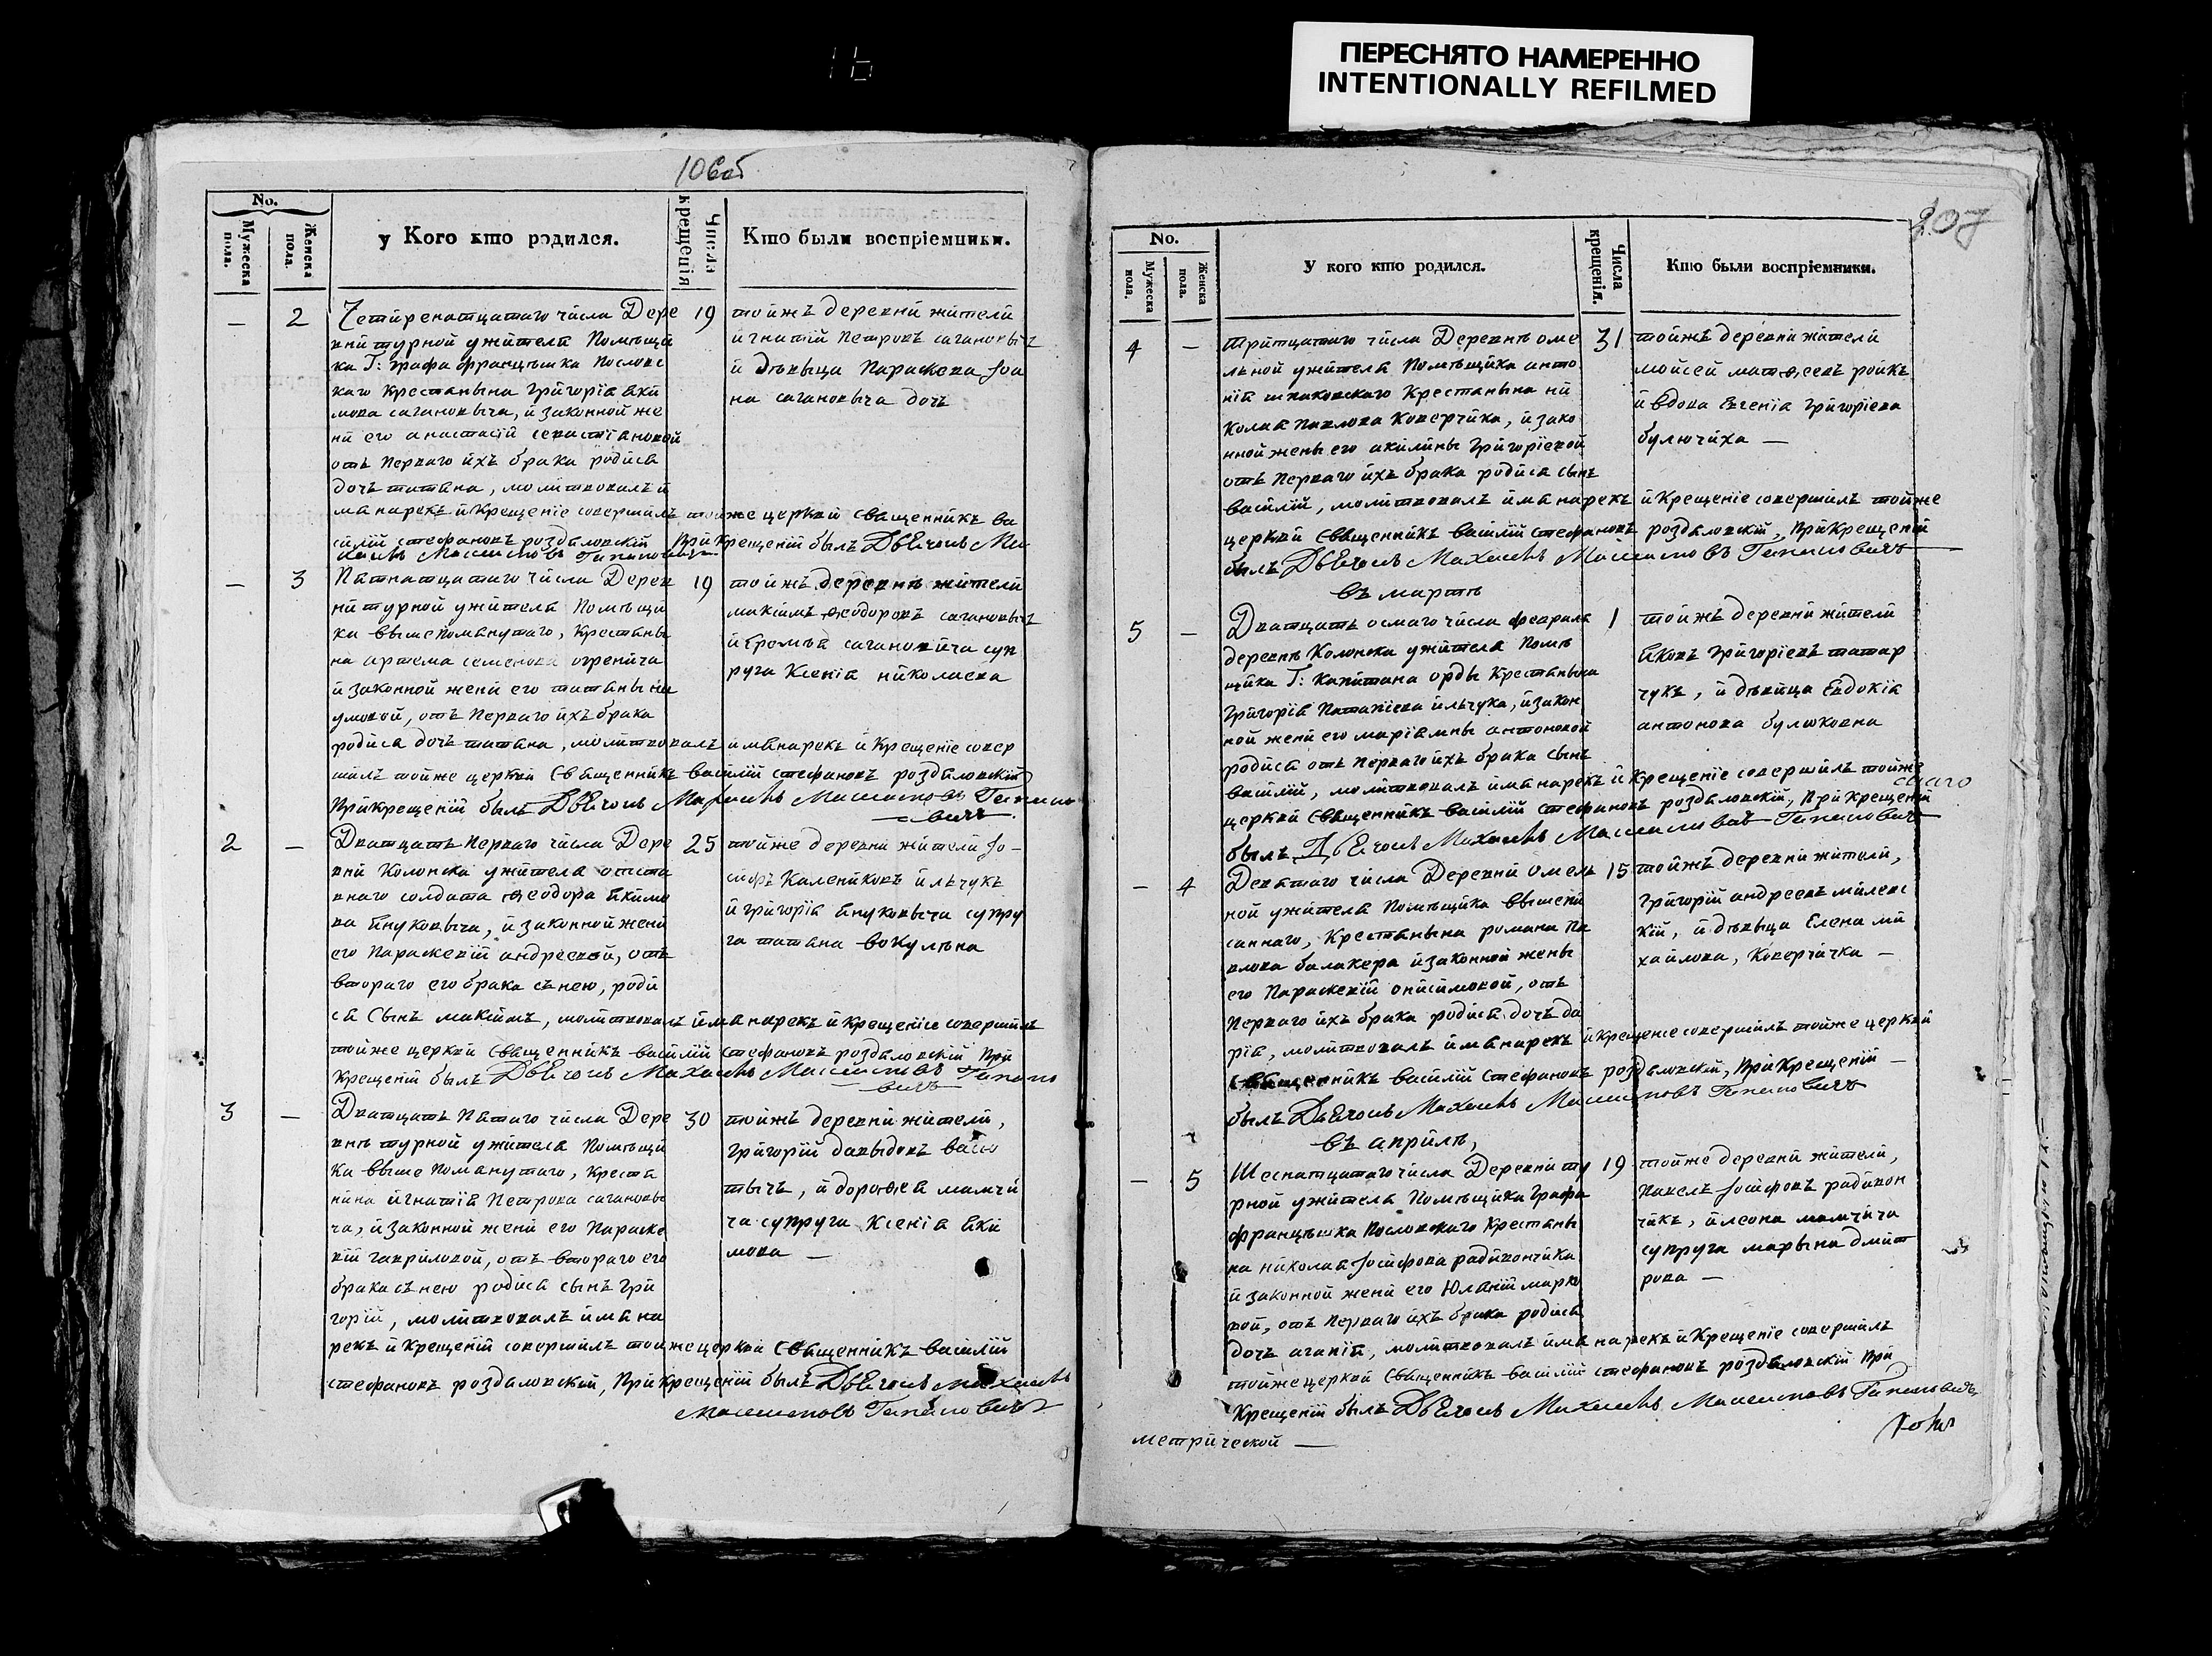 ПЕРЕСНЯТО НАМЕРЕННО
INTENTIONALLY REFILMED
106об
No.
Мужеска пола.
Женска пола.
у Кого кто родился.
Числа крещенія
Кто были воспріемники.
— 2
Четиренатцатаго числа Дере
вни турной ужителя Помѣщи
ка Г: Графа францѣшка Пословс
каго Крестьянына Григорія Яки
мова сагановыча, и законной же
ни его анастасіи севастіановой
отъ Перваго ихъ брака родися
дочъ татяна, молитвовалъ и
мя нарекъ и Крещеніе совершилъ тойже церкви священникъ ва
силій стефановъ роздяловскій При Крещеніи былъ Дьячокъ Ма
19
тойжъ деревни жители
игнатій Петровъ сагановычъ
и дѣвыца Параскева Іоа
на сагановыча дочъ
— 3
Пятнатцатаго числа Дерев
ни турной ужителя Помѣщи
ка вышепомянутаго, Крестьяны
на артема семенова огренича
и законной жени его татяны на
умовой, отъ Перваго ихъ брака
родися дочъ татяна, молитвовалъ имя нарекъ и Крещеніе совер
шилъ тойже церкви Священникъ василій стефановъ роздяловскій
При Крещеніи былъ Дьячокъ
19
тойжъ деревнѣ жители
максимъ ѳеодоровъ сагановычъ
и Еремѣя сагановича суп
руга Ксенія николаева
2 —
Дватцать Перваго числа Дере
вни Колонска ужителя отста
внаго солдата ѳеодора Якимо
ва Януковыча, и законной жени
его Параскевіи андреевой, отъ
втораго его брака сънею, роди
ся Сынъ максимъ, молитвовалъ имя нарекъ и Крещеніе совершилъ
тойже церкви Священникъ василій стефановъ роздяловскій При
Крещеніи былъ Дьячокъ
25
тойже деревни жители Іо-
сифъ Калениковъ ильчукъ
и григорія Януковыча супру
га татяна вокулѣна
3 —
Дватцать Пятаго числа Дере
внѣ турной ужителя Помѣщи
ка выше Помянутаго, Крестья
нина игнатія Петрова сагановы
ча, и законной жени его Параске
віи гавриловой, отъ втораго его
брака сънею родися сынъ Гри
горій, молитвовалъ имя на
рекъ и Крещеніи совершилъ тойже церкви Священникъ василій
стефановъ роздяловскій, При Крещеніи былъ Дьячокъ
30
тойжъ деревни жители,
Григорій давыдовъ
тычъ, и дороѳея мамчи
ча супруга Ксенія Яки
мова —
107
No.
Мужеска пола.
Женска пола.
У кого кто родился.
Числа крещенія.
Кто были воспріемники.
4 —
Тритцатаго числа Деревнѣ оме
льной ужителя Помѣщика анто
нія шпаковскаго Крестьянына ни
колая Павлова Коверчика, и зако
нной жены его акилины Григоріевой
отъ Перваго ихъ брака родися сынъ
василій, молитвовалъ имя нарекъ и Крещеніе совершилъ тойже
церкви Священникъ василій стефановъ роздяловскій, При Крещеніи
былъ Дьячокъ
31
тойжъ деревни жители
мойсей матѳеевъ ройкъ
и вдова Евгенія Григоріева
булючиха —
въ мартѣ
5 —
Дватцать осмаго числа февраля
деревнѣ Колонска ужителя Помѣ
щика Г: Капитана орды Крестьянына
Григорія Потапіева ильчука, и закон
ной жени его маріамны антоновой
родися отъ Перваго ихъ брака сынъ
василій, молитвовалъ имя нарекъ и Крещеніе совершилъ тойже
церкви Священникъ василій стефановъ роздяловскій, При Крещеніи
былъ Дьячокъ
1
тойжъ деревни жители
Яковъ Григоріевъ татар
чукъ, и дѣвица Евдокія
антонова булюковна
— 4
Девятаго числа Деревни Омель
ной ужителя Помѣщика вышепи
саннаго, Крестьянына романа Па
влова балакера и законной жены
его Параскевіи онисимовой, отъ
Перваго ихъ брака родися дочъ да
рія, молитвовалъ имя нарекъ и Крещеніе совершилъ тойже церкви
Священникъ василій Стефановъ роздяловскій, При Крещеніи —
былъ Дьячокъ
15
тойжъ деревни жители,
Григорій андреевъ милевс
кій, и дѣвыца Елена ми
хайлова, Коверчичка —
въ априлѣ,
— 5
Шеснатцатаго числа Деревни ту
рной ужителя Помѣщика Графа
францѣшка Пословскаго Крестьяны
на николая Іосифова радивончика
и законной жени его Юліаніи марко
вой, отъ Перваго ихъ брака родися
дочъ агапія, молитвовалъ имя нарекъ и Крещеніе совершилъ
тойже церкви Священникъ василій стефановъ роздяловскій При
Крещеніи былъ Дьячокъ
19
тойже деревни жители,
Павелъ Іосифовъ радивон
чикъ, и леона мамчича
супруга марына дмит
рова —
метрической —